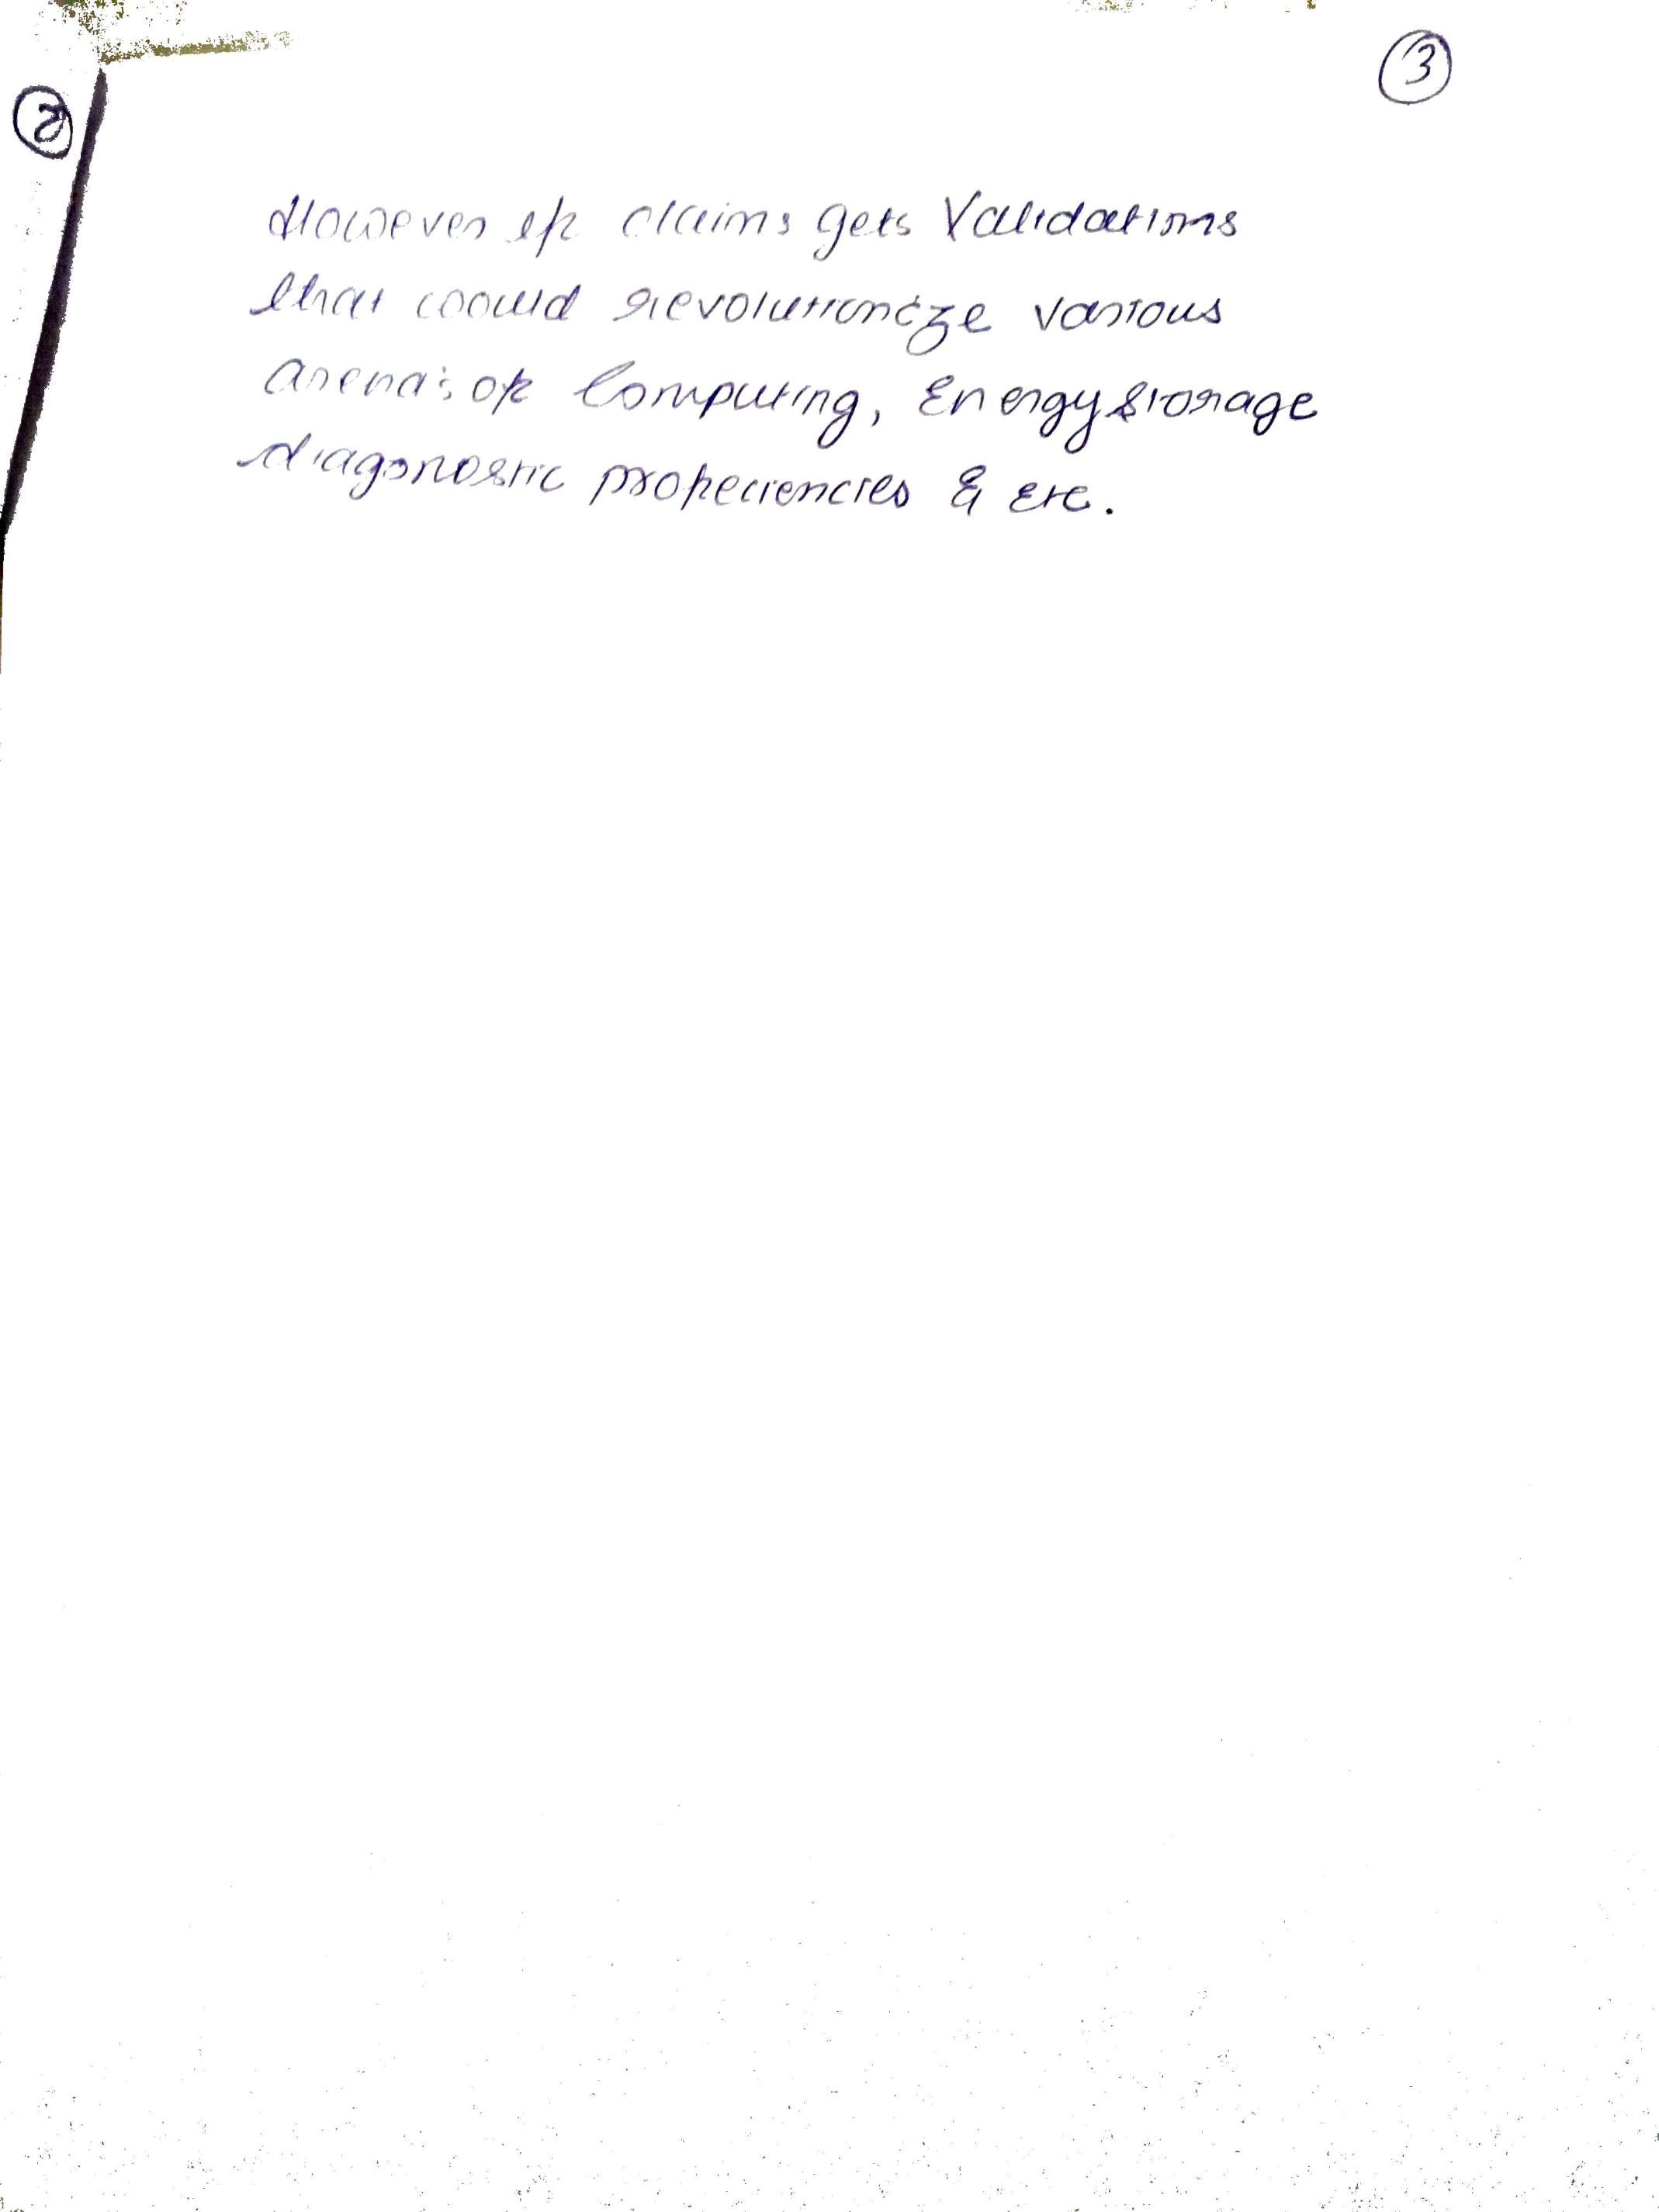 2
3
However if claims gets Validations
that coould revolutionize various
arena's of Computing, Energy Storage
diagonostic profeciencies & etc.